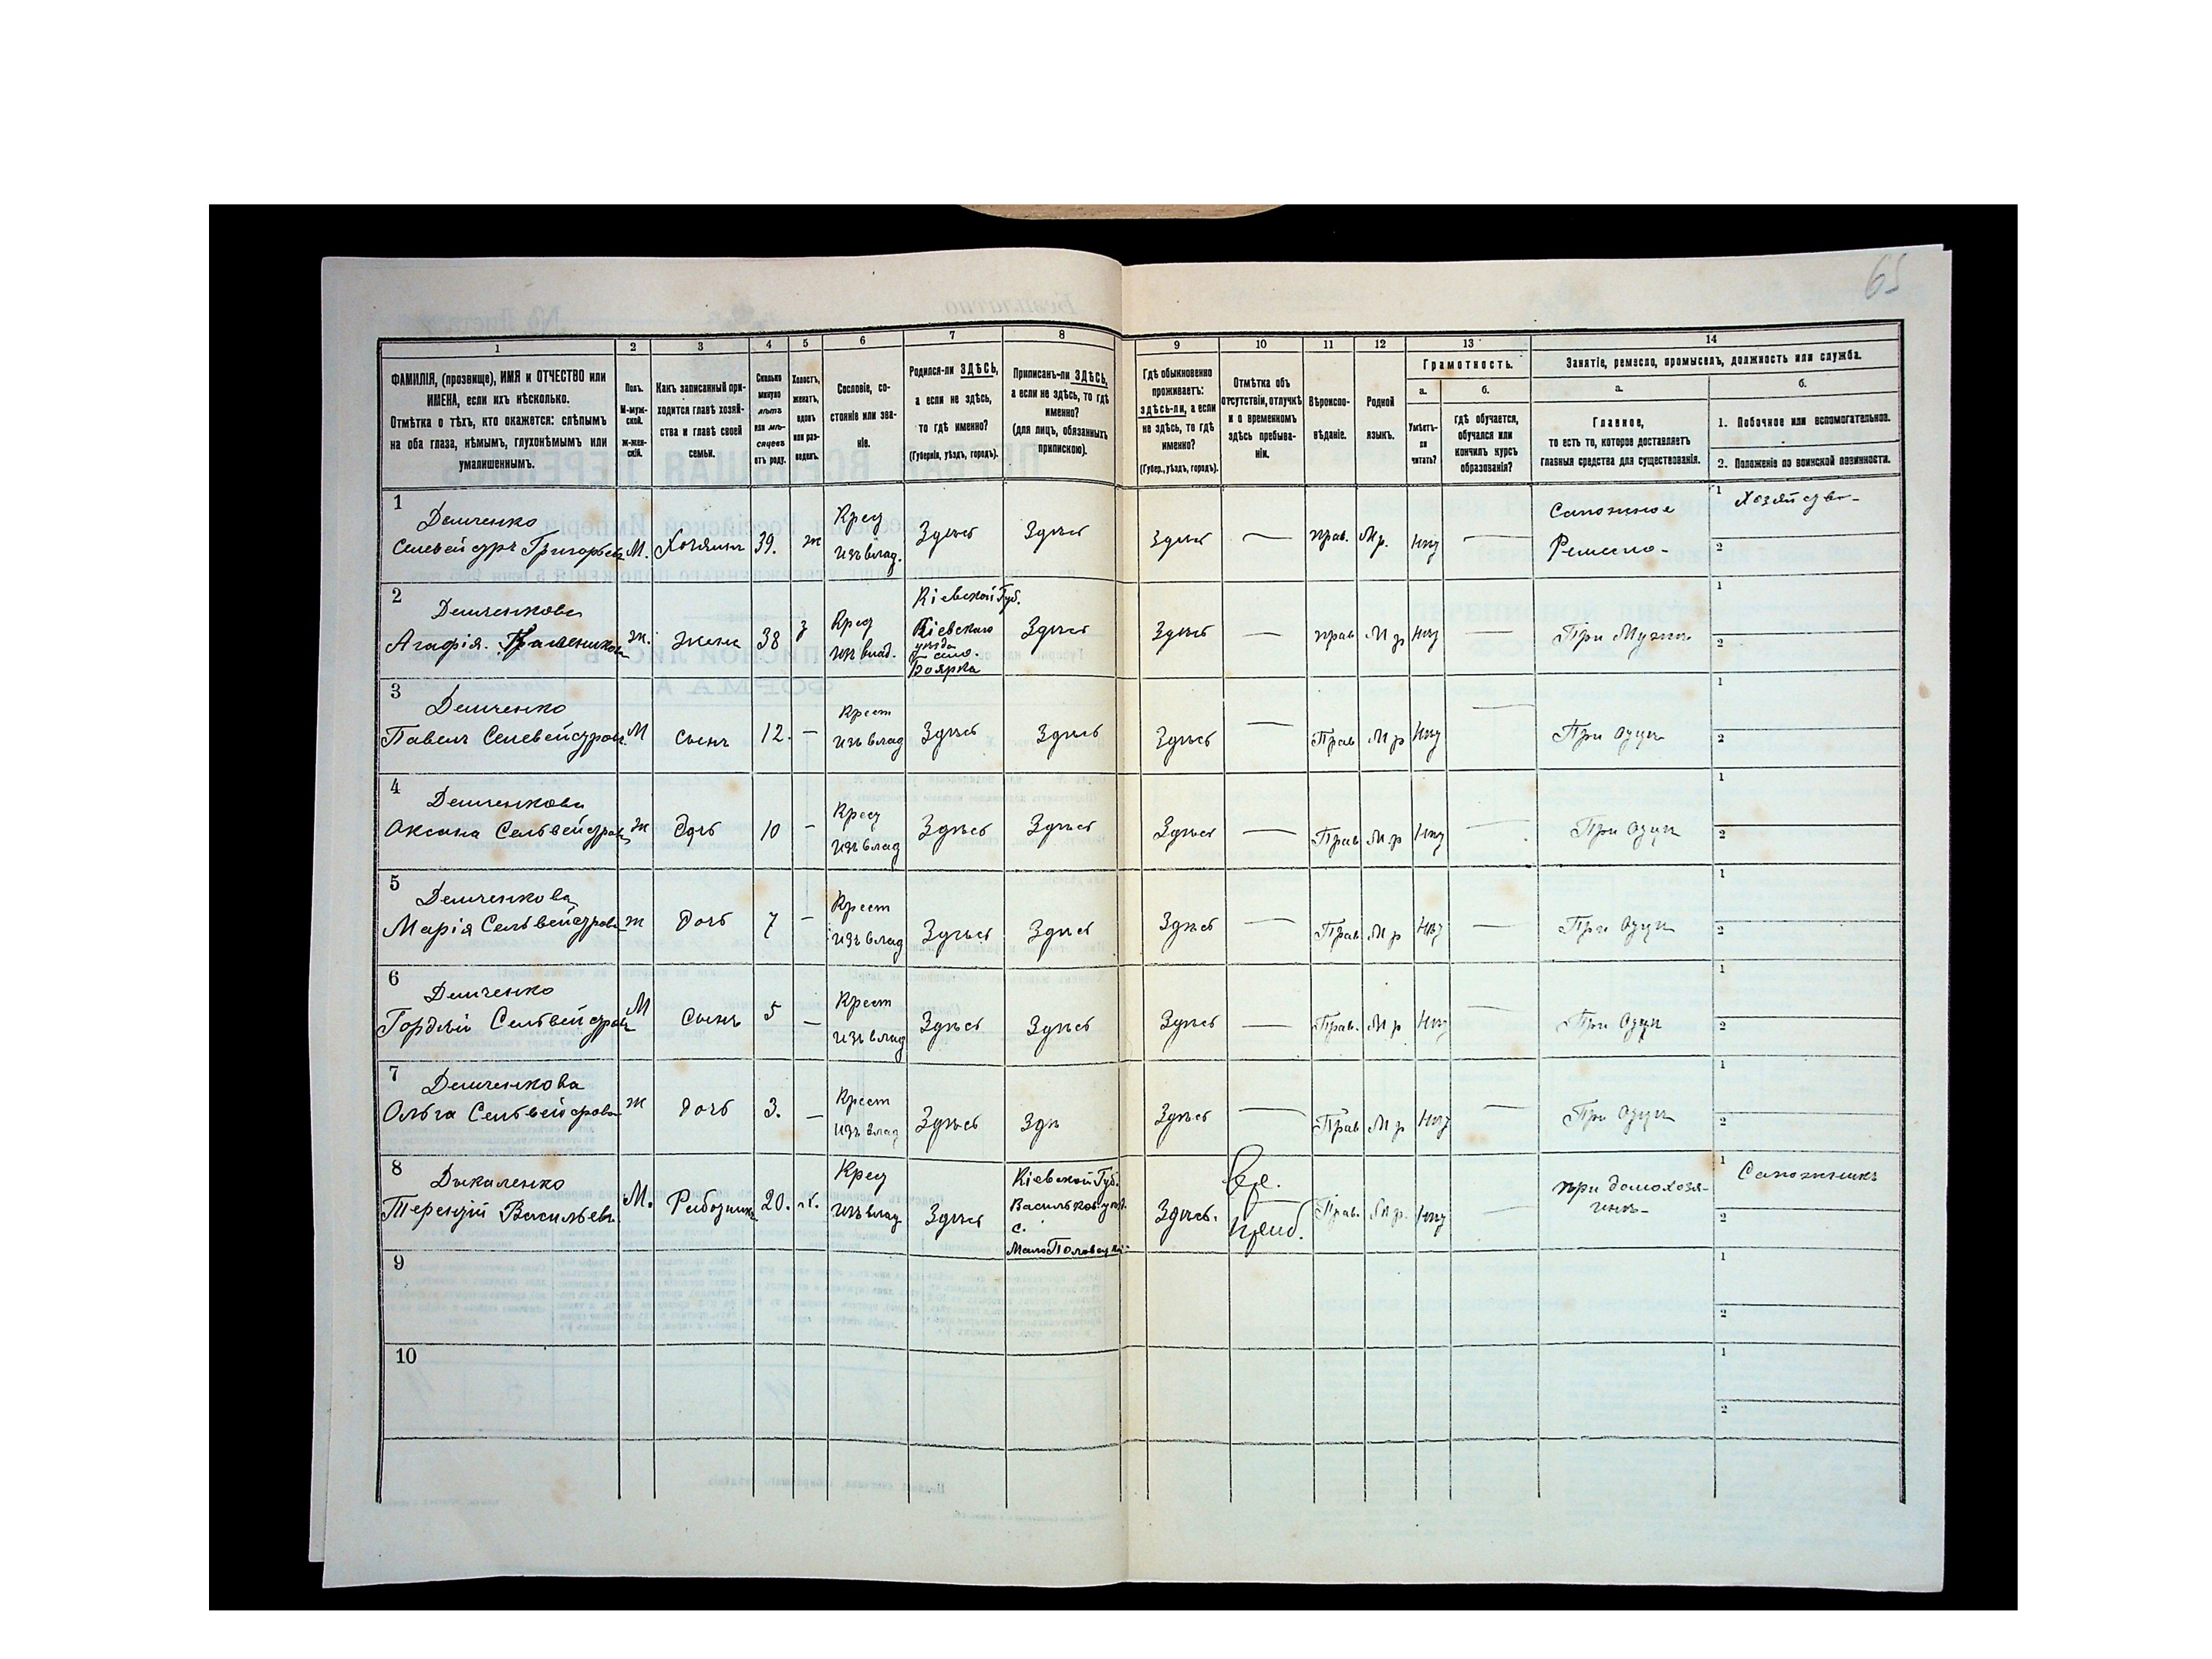 65
1
2
3
4
5
6
7
8
9
10
11
12
13
14
ФАМИЛІЯ, (прозвище), ИМЯ и ОТЧЕСТВО или
ИМЕНА, если ихъ нѣсколько.
Отмѣтка о тѣхъ, кто окажется: слѣпымъ
на оба глаза, нѣмымъ, глухонѣмымъ или
умалишеннымъ.
Полъ.
М-муж-
ской.
Ж-жен-
скій.
Какъ записанный при-
ходится главѣ хозяй-
ства и главѣ своей
семьи.
Сколько
минуло
лѣтъ
или мѣ-
сяцевъ
отъ роду.
Холостъ,
женатъ,
вдовъ
или раз-
веденъ.
Сословіе, со-
стояніе или зва-
ніе.
Родился-ли ЗДѢСЬ,
а если не здѣсь,
то гдѣ именно?
(Губернія, уѣздъ, городъ).
Приписанъ-ли ЗДѢСЬ,
а если не здѣсь, то гдѣ
именно?
(для лицъ, обязанныхъ
припискою).
Гдѣ обыкновенно
проживаетъ:
здѣсь-ли, а если
не здѣсь, то гдѣ
именно?
(Губер., уѣздъ, городъ).
Отмѣтка объ
отсутствіи, отлучкѣ
и о временномъ
здѣсь пребыва-
ніи.
Вѣроиспо-
вѣданіе.
Родной
языкъ.
Грамотность.
а.
б.
Умѣетъ-
ли
читать?
гдѣ обучается,
обучался или
кончилъ курсъ
образованія?
Занятіе, ремесло, промыселъ, должность или служба.
а.
б.
Главное,
то есть то, которое доставляетъ
главныя средства для существованія.
1. Побочное или вспомогательное.
2. Положеніе по воинской повинности.
1
Демченко
Селевейстръ Григорьевъ М. Хозяинъ 39. ж Крест изъ влад. Здѣсь Здѣсь Здѣсь — прав. Мр. нѣт — Сапожное Ремесло- 1 Хозяйство-
2
2
Демченкова
Агафія. ж. жена 38 з Крест изъ влад. Кіевской Губ. Кіевскаго уезда село. Боярка Здѣсь Здѣсь — прав Мр нѣт — При Мужи 1
2
3
Демченко
Павелъ Селевейстровъ М сынъ 12. — Крест изъ влад Здѣсь Здѣсь Здѣсь — Прав Мр нѣт — При отцѣ 1
2
4
Демченкова
Оксана Сельвейстров ж дочь 10 — Крест изъ влад Здѣсь Здѣсь Здѣсь — Прав Мр нѣт — При отцѣ 1
2
5
Демченкова
Марія Сельвейстров ж дочь 7 — Крест изъ влад Здѣсь Здѣсь Здѣсь — Прав Мр нѣт — При отцѣ 1
2
6
Демченко
Гордѣй Сельвейстров М сынъ 5 — Крест изъ влад Здѣсь Здѣсь Здѣсь — Прав. Мр нѣт — При отцѣ 1
2
7
Демченкова
Ольга Сельвейстрова ж дочь 3. — Крест изъ влад Здѣсь Здѣ Здѣсь — Прав Мр нѣт — При отцѣ 1
2
8
Дыкаленко
Терентій Васильевъ М. Работникъ 20. х. Крест изъ влад Здѣсь Кіевской Губ. Васильков. уезд. с. Мало Половецкі Здѣсь. вре. преб. Прав. Мр. нѣт — при домохозя- инѣ- 1 Сапожникъ
2
9
1
2
10
1
2